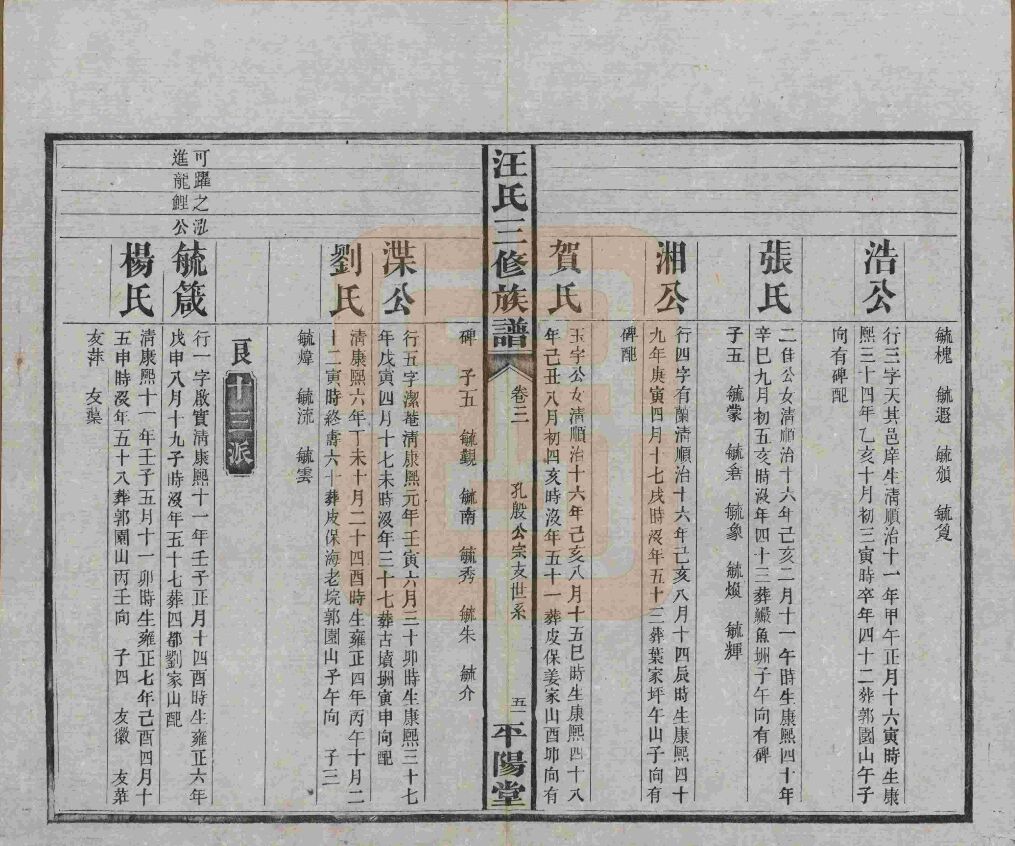 毓槐 毓遐 毓頎 毓筧
浩公
行三字天其邑庠生清順治十一年甲午正月十六寅時生康
熙三十四年乙亥十月初三寅時卒年四十二葬郭園山午子
向有碑配
張氏
二佳公女清順治十六年己亥二月十一午時生康熙四十年
辛巳九月初五亥時沒年四十三葬鱖魚坳子午向有碑
子五 毓蒙 毓 毓象 毓煥 毓輝
湘公
行四字有蘭清順治十六年己亥八月十四辰時生康熙四十
九年庚寅四月十七戌時沒年五十三葬葉家坪午山子向有
碑配
賀氏
玉字公女清順治十六年己亥八月十五巳時生康熙四十八
年己丑八月初四亥時沒年五十一葬皮保姜家山酉卯向有
汪氏三修族譜
卷三
孔殷公宗支世系
五一
平陽堂
碑 子五 毓觀 毓南 毓秀 毓朱 毓介
渫公
行五字潔菴清康熙元年壬寅六月三十卯時生康熙三十七
年戊寅四月十七未時沒年三十七葬古墳坳寅申向配
劉氏
清康熙六年丁未十月二十四酉時生雍正四年丙午十月二
十二寅時終壽六十葬皮保海老垸郭園山子午向 子三
毓煒 毓流 毓雲
良十三派
可躍之泓
進龍鯉公
毓箴
行一字啟實清康熙十一年壬子正月十四酉時生雍正六年
戊申八月十九子時沒年五十七葬四都劉家山配
楊氏
清康熙十一年壬子五月十一卯時生雍正七年己酉四月十
五申時沒年五十八葬郭園山丙壬向 子四 友徽 友蓷
友萍 友蕖